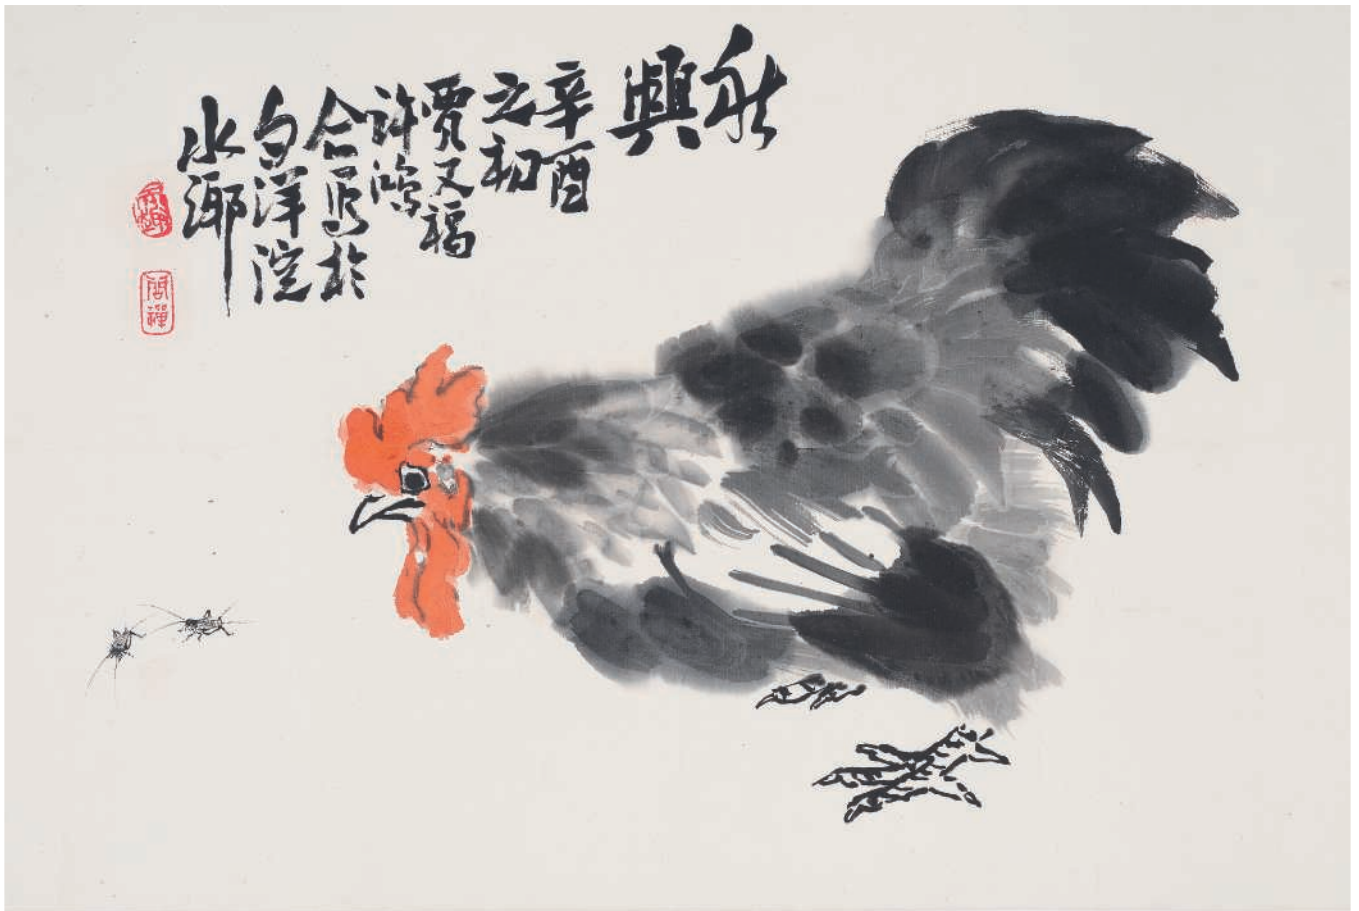 秋興
辛酉
之初
賈又福
許鴻
合寫於
白洋淀
水鄉
問禪